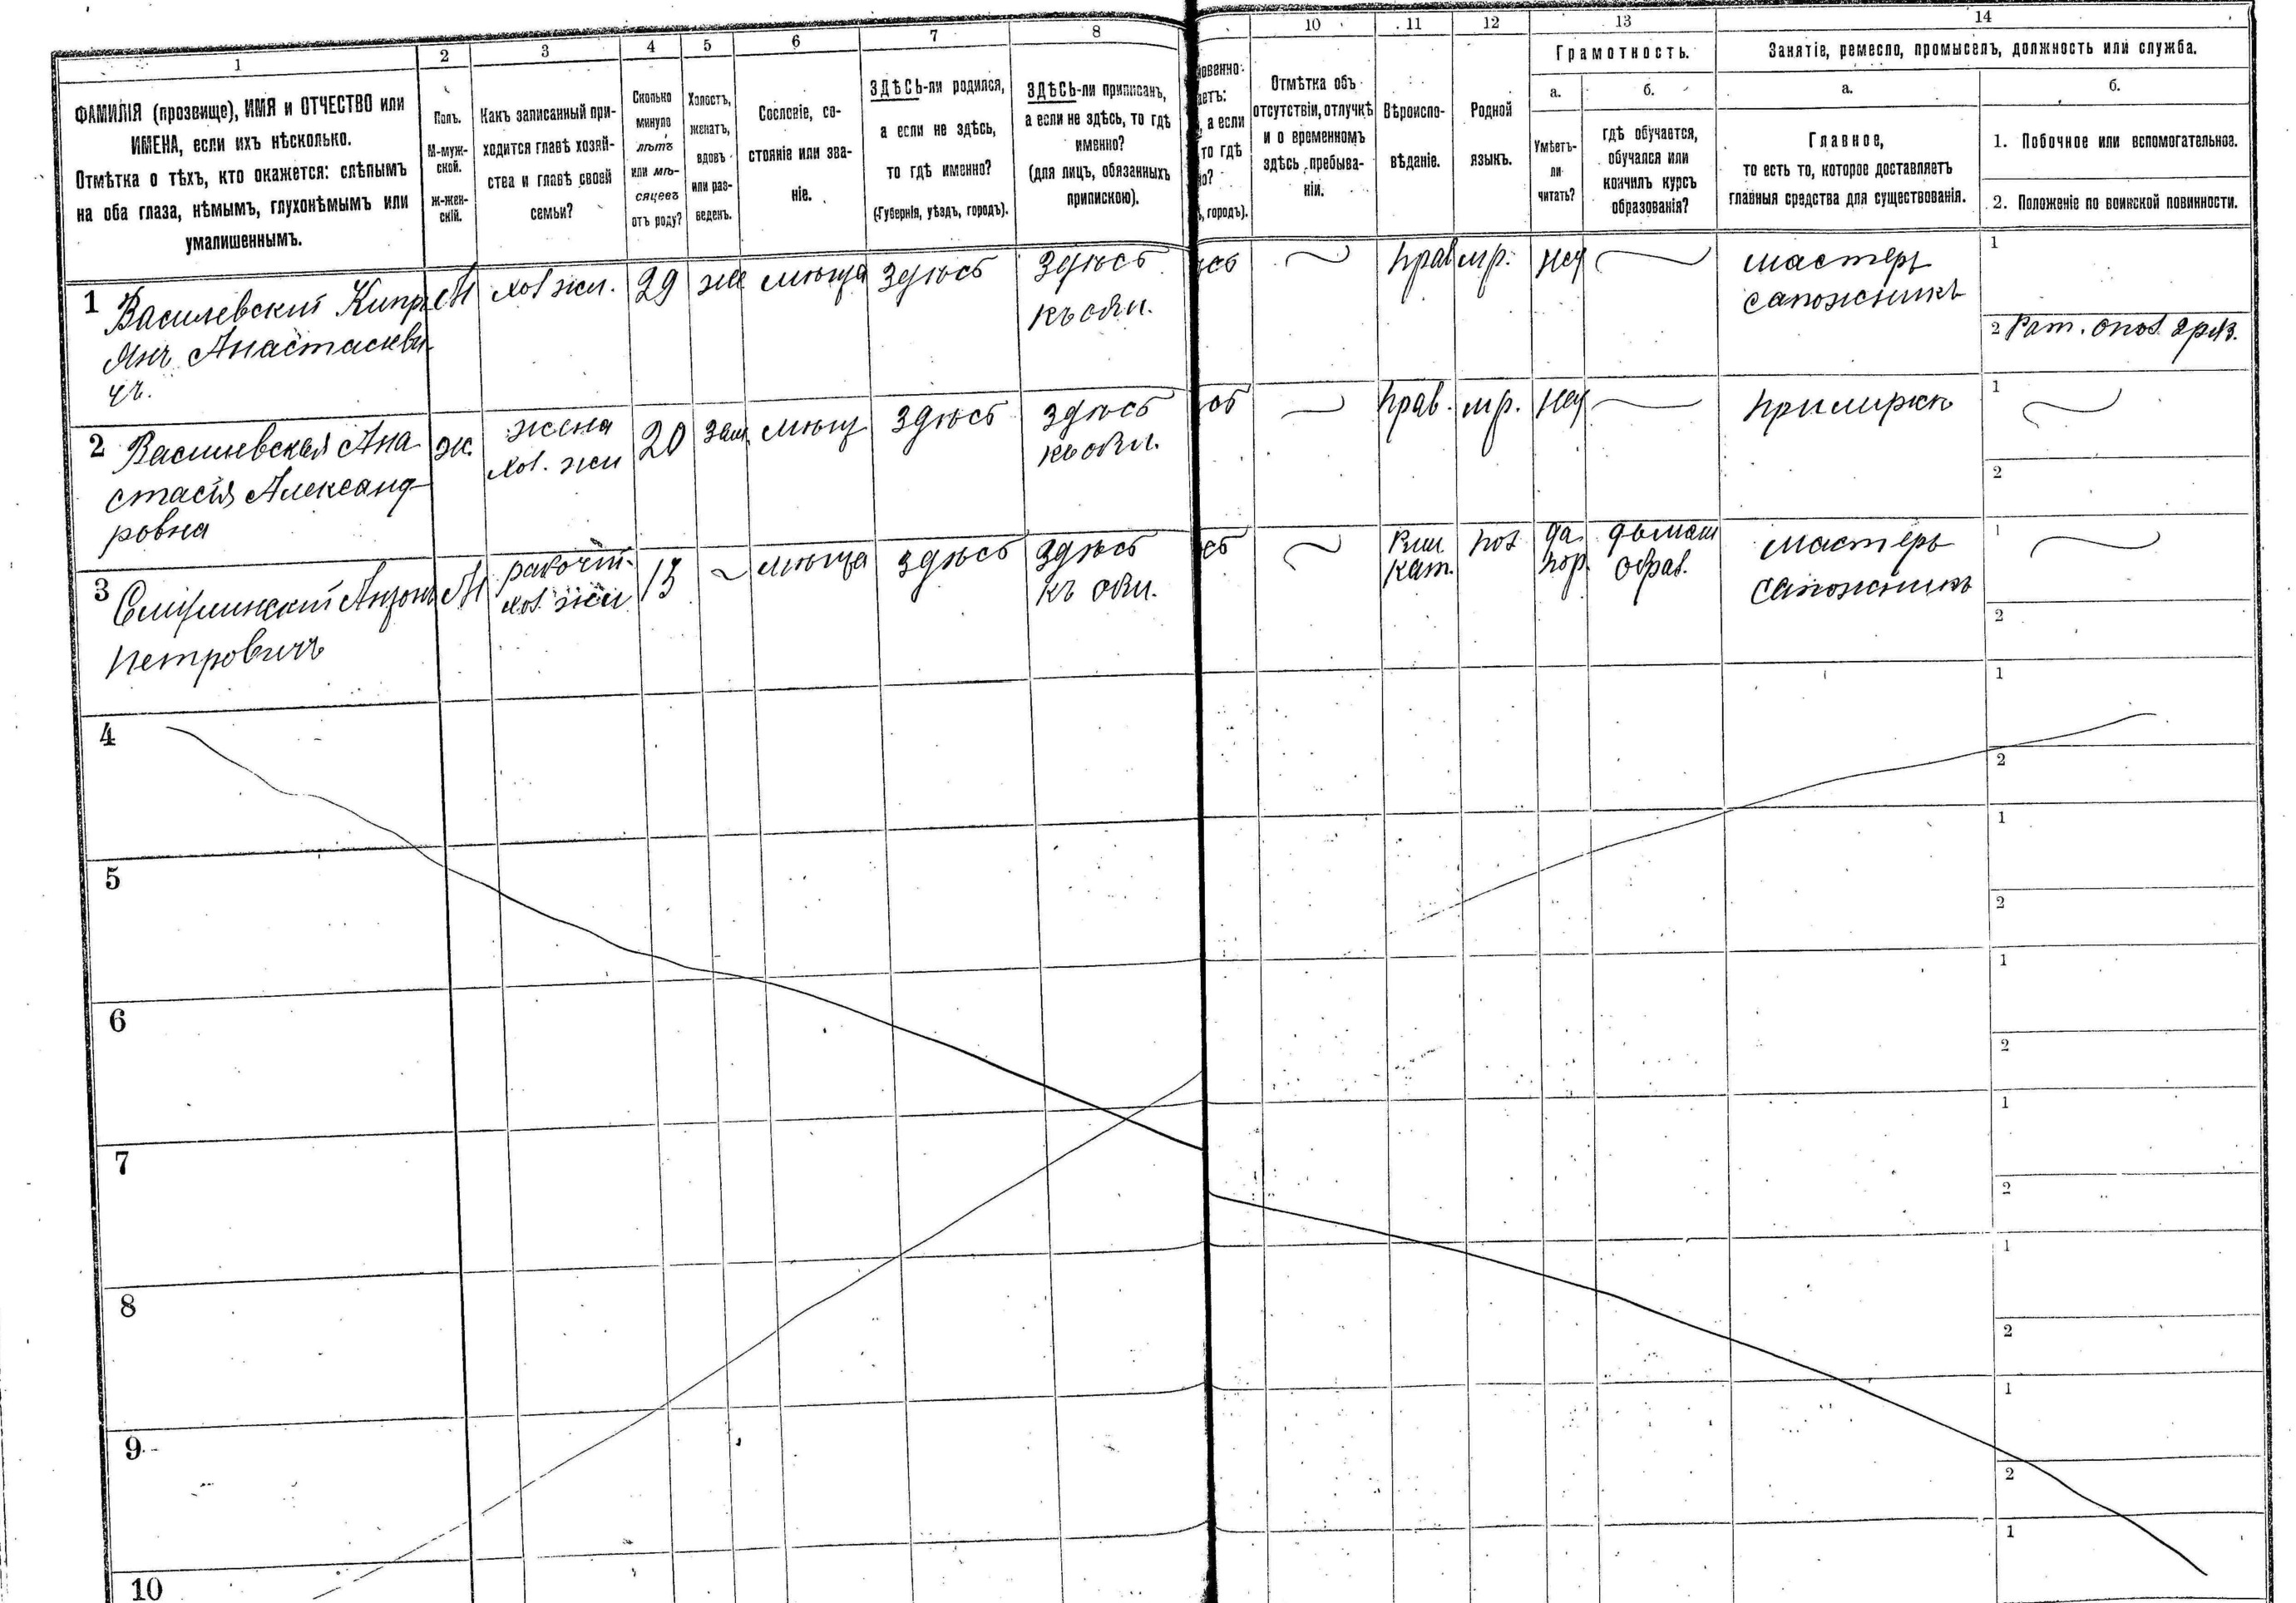 1 2 3 4 5 6 7 8 10 11 12 13 14
ФАМИЛІЯ (прозвище), ИМЯ и ОТЧЕСТВО или
ИМЕНА, если ихъ нѣсколько.
Отмѣтка о тѣхъ, кто окажется: слѣпымъ
на оба глаза, нѣмымъ, глухонѣмымъ или
умалишеннымъ.
Полъ.
М-муж-
ской.
Ж-жен-
скій.
Какъ записанный при-
ходится главѣ хозяй-
ства и главѣ своей
семьи?
Сколько
минуло
лѣтъ
или мѣ-
сяцевъ
отъ роду?
Холостъ,
женатъ,
вдовъ
или раз-
веденъ.
Сословіе, со-
стояніе или зва-
ніе.
ЗДѢСЬ-ли родился,
а если не здѣсь,
то гдѣ именно?
(Губернія, уѣздъ, городъ).
ЗДѢСЬ-ли приписанъ,
а если не здѣсь, то гдѣ
именно?
(для лицъ, обязанныхъ
припискою).
овенно
аетъ:
, а если
то гдѣ
но?
, городъ).
Отмѣтка объ
отсутствіи, отлучкѣ
и о временномъ
здѣсь пребыва-
ніи.
Вѣроиспо-
вѣданіе.
Родной
языкъ.
Грамотность.
а.
Умѣетъ-
ли
читать?
б.
гдѣ обучается,
обучался или
кончилъ курсъ
образованія?
Занятіе, ремесло, промыселъ, должность или служба.
а.
Главное,
то есть то, которое доставляетъ
главныя средства для существованія.
б.
1. Побочное или вспомогательное.
2. Положеніе по воинской повинности.
1 Василевский Кипри
янъ Анастасьеви
чъ.
М
29
же
мѣща
здѣсь
здѣсь
къ
сь
прав
мр.
нет
мастеръ
сапожникъ
1
2 Рат. опол. 2 раз.
2 Василевская Ана
стасія Александ
ровна
ж.
жена
20
зам
мѣщ
здѣсь
здѣсь
сь
прав.
мр.
нет
при мужѣ
1
2
3
Антонъ
Петровичъ
М
рабочій
13
мѣща
здѣсь
здѣсь
къ
сь
Рим
кат.
пол
да
пор.
домаш
образ.
мастеръ
сапожникъ
1
2
4 1
2
5 1
2
6 1
2
7 1
2
8 1
2
9 1
2
10 1